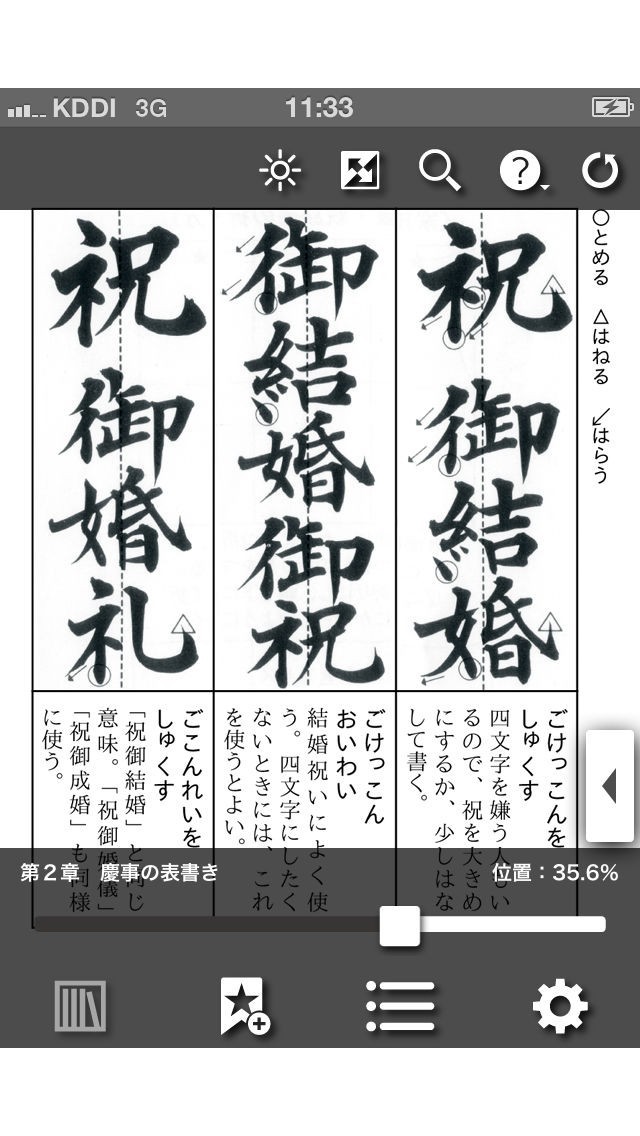 KDDI 3G 11:33
○とめる △はねる ↙はらう
祝 御結婚
ごけっこんを
しゅくす
四文字を嫌う人もい
るので、祝を大きめ
にするか、少しはな
して書く。
御結婚御祝
ごけっこん
おいわい
結婚祝いによく使
う。四文字にしたく
ないときには、これ
を使うとよい。
祝 御婚礼
ごこんれいを
しゅくす
「祝御結婚」と同じ
意味。「祝御婚儀」
「祝御成婚」も同様
に使う。
第2章 慶事の表書き
位置：35.6%